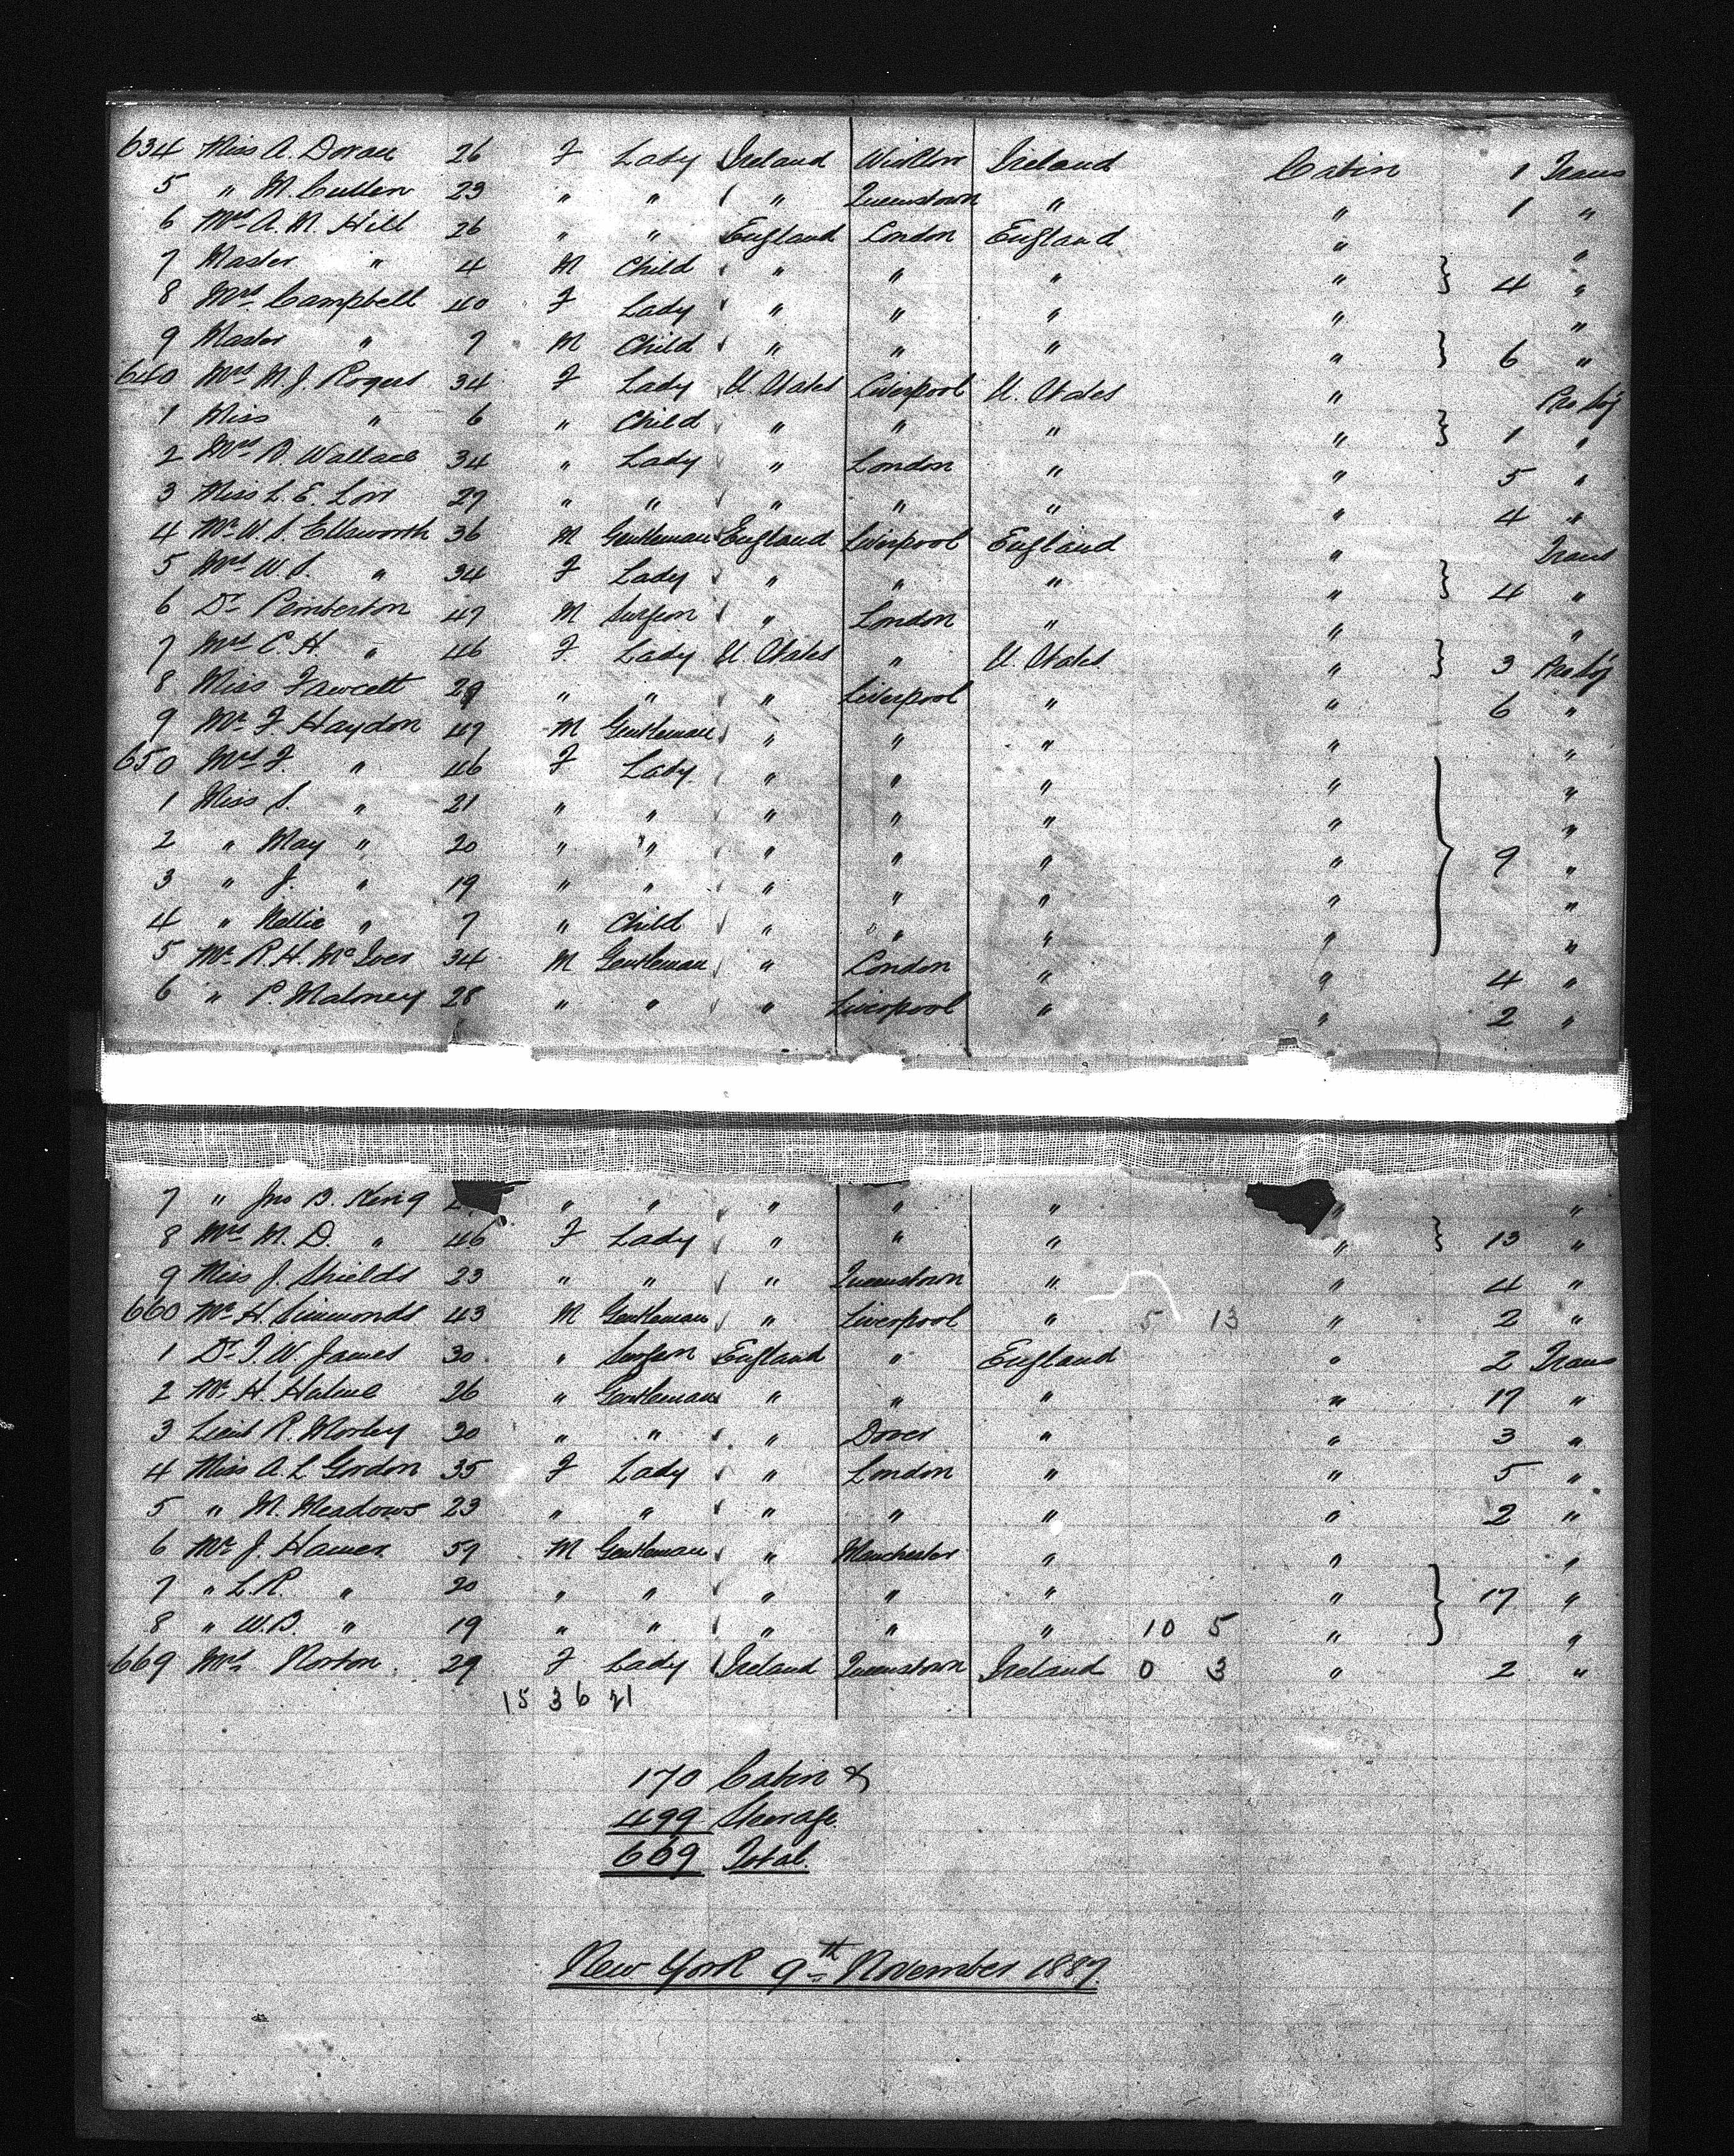 634 Miss A. Doran 26 F Lady Ireland Wicklow Ireland Cabin 1 Trans
5 " M. Cullen 23 " " " Queenstown " " 1 "
6 Mrs A. M. Hill 26 " " England London England " "
7 Master " 4 M Child " " " " } 4 "
8 Mrs Campbell 40 F Lady " " " " "
9 Master " 7 M Child " " " " } 6 "
640 Mrs M. J. Rogers 34 F Lady U. States Liverpool U. States "
1 Miss " 6 " Child " " " " } 1 "
2 Mrs B. Wallace 34 " Lady " London " " 5 "
3 Miss L. E. Low 27 " " " " " " 4 "
4 Mr W. S. Ellsworth 36 M Gentleman England Liverpool England " Trans
5 Mrs W. S. " 34 F Lady " " " " } 4 "
6 Dr Pemberton 47 M Surgeon " London " " "
7 Mrs C. H. " 46 F Lady U. States " U. States " } 3
8 Miss Fawcett 29 " " " Liverpool " " 6 "
9 Mr F. Haydon 49 M Gentleman " " " " "
650 Mrs F. " 46 F Lady " " " " "
1 Miss S. " 21 " " " " " " "
2 " May " 20 " " " " " " } 9 "
3 " J. " 19 " " " " " " "
4 " Nellie " 7 " Child " " " " "
5 Mr R. H. McIver 34 M Gentleman " London " " 4 "
6 " P. Maloney 28 " " " Liverpool " " 2 "
7 " Jno B. King " " " " " " "
8 Mrs M. D. " 46 F Lady " " " " } 13 "
9 Miss J. Shields 23 " " " Queenstown " " 4 "
660 Mr H. Simmonds 43 M Gentleman " Liverpool " 5 13 " 2 "
1 Dr T. W. James 30 " Surgeon England " England " 2 Trans
2 Mr H. 26 " Gentleman " " " " 17 "
3 Lieut R. Morley 30 " " " Dover " " 3 "
4 Miss A. L. Gordon 35 F Lady " London " " 5 "
5 " M. Meadows 23 " " " " " " 2 "
6 Mr J. Hamer 59 M Gentleman " Manchester " " "
7 " L. R. " 20 " " " " " " } 17 "
8 " W. B. " 19 " " " " " 10 5 " "
669 Mrs Norton 29 F Lady Ireland Queenstown Ireland 0 3 " 2 "
15 36 21
170 Cabin &
499 Steerage
669 Total
New York 9th November 1887